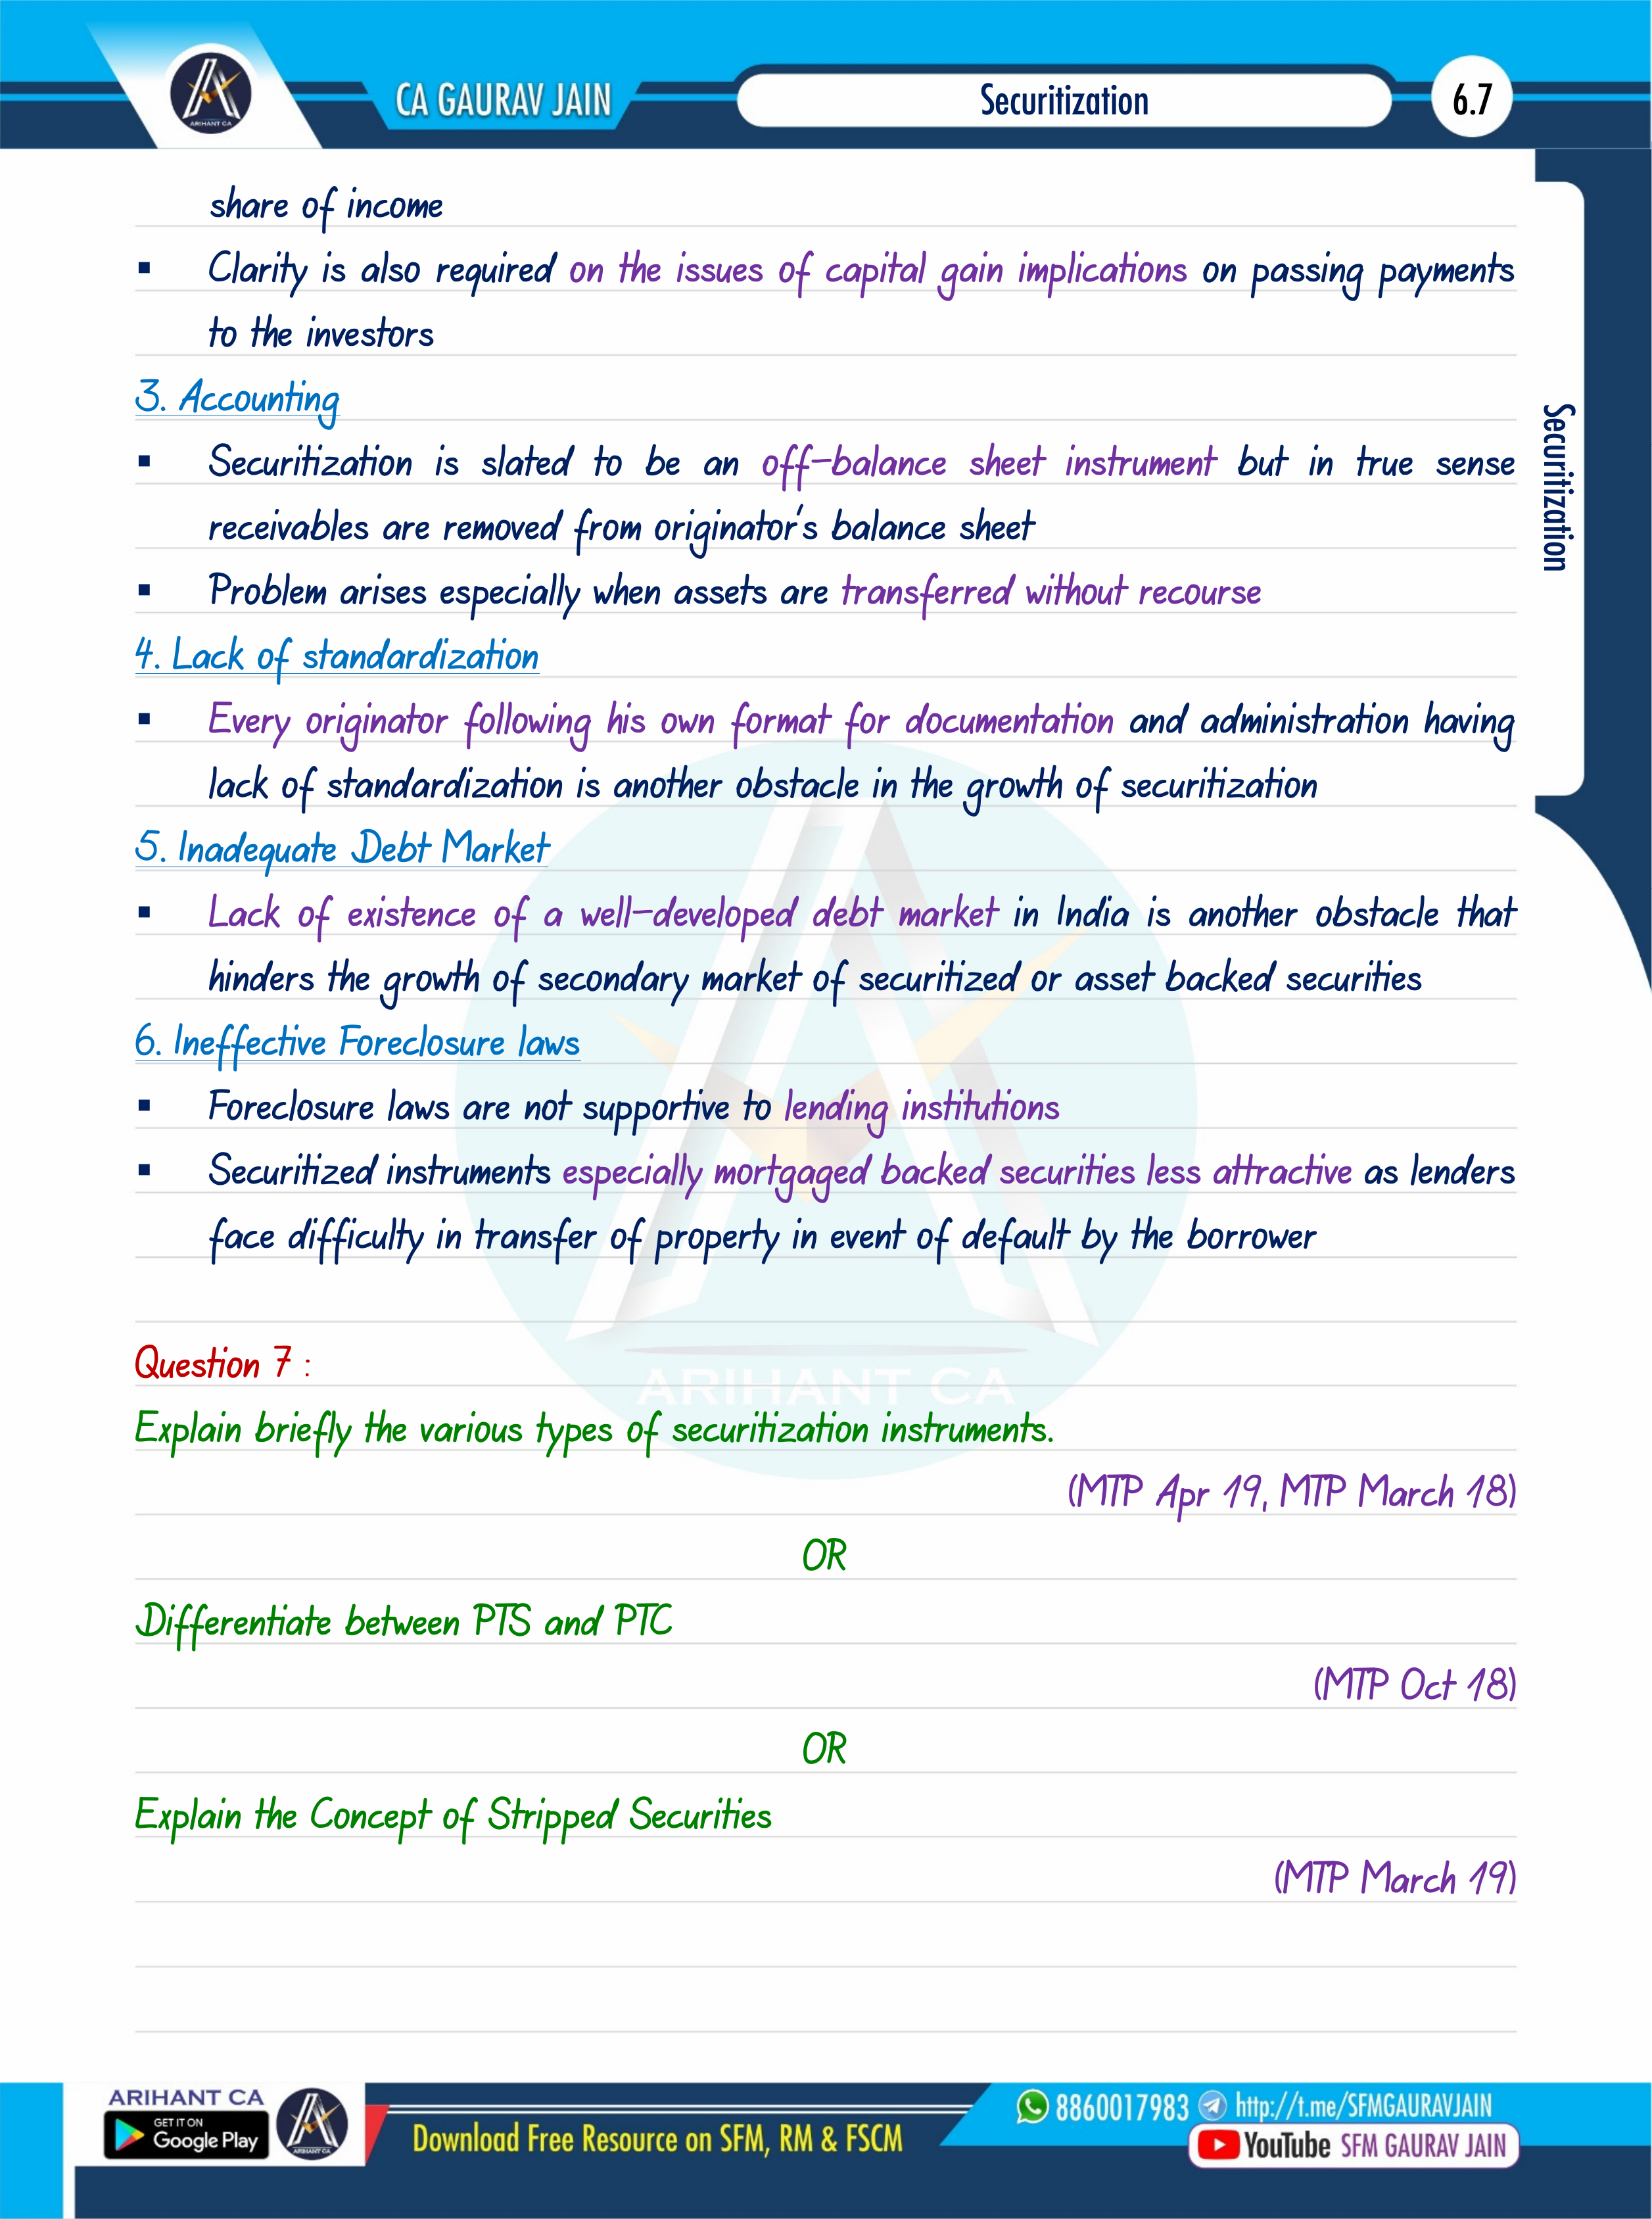 CA GAURAV JAIN
Securitization
6.7
ARIHANT CA
share of income
▪ Clarity is also required on the issues of capital gain implications on passing payments
to the investors
3. Accounting
▪ Securitization is slated to be an off-balance sheet instrument but in true sense
receivables are removed from originator's balance sheet
▪ Problem arises especially when assets are transferred without recourse
4. Lack of standardization
▪ Every originator following his own format for documentation and administration having
lack of standardization is another obstacle in the growth of securitization
5. Inadequate Debt Market
▪ Lack of existence of a well-developed debt market in India is another obstacle that
hinders the growth of secondary market of securitized or asset backed securities
6. Ineffective Foreclosure laws
▪ Foreclosure laws are not supportive to lending institutions
▪ Securitized instruments especially mortgaged backed securities less attractive as lenders
face difficulty in transfer of property in event of default by the borrower
Securitization
ARIHANT CA
Question 7 :
Explain briefly the various types of securitization instruments.
(MTP Apr 19, MTP March 18)
OR
Differentiate between PTS and PTC
(MTP Oct 18)
OR
Explain the Concept of Stripped Securities
(MTP March 19)
ARIHANT CA
GET IT ON
Google Play
ARIHANT CA
Download Free Resource on SFM, RM & FSCM
8860017983 http://t.me/SFMGAURAVJAIN
YouTube SFM GAURAV JAIN